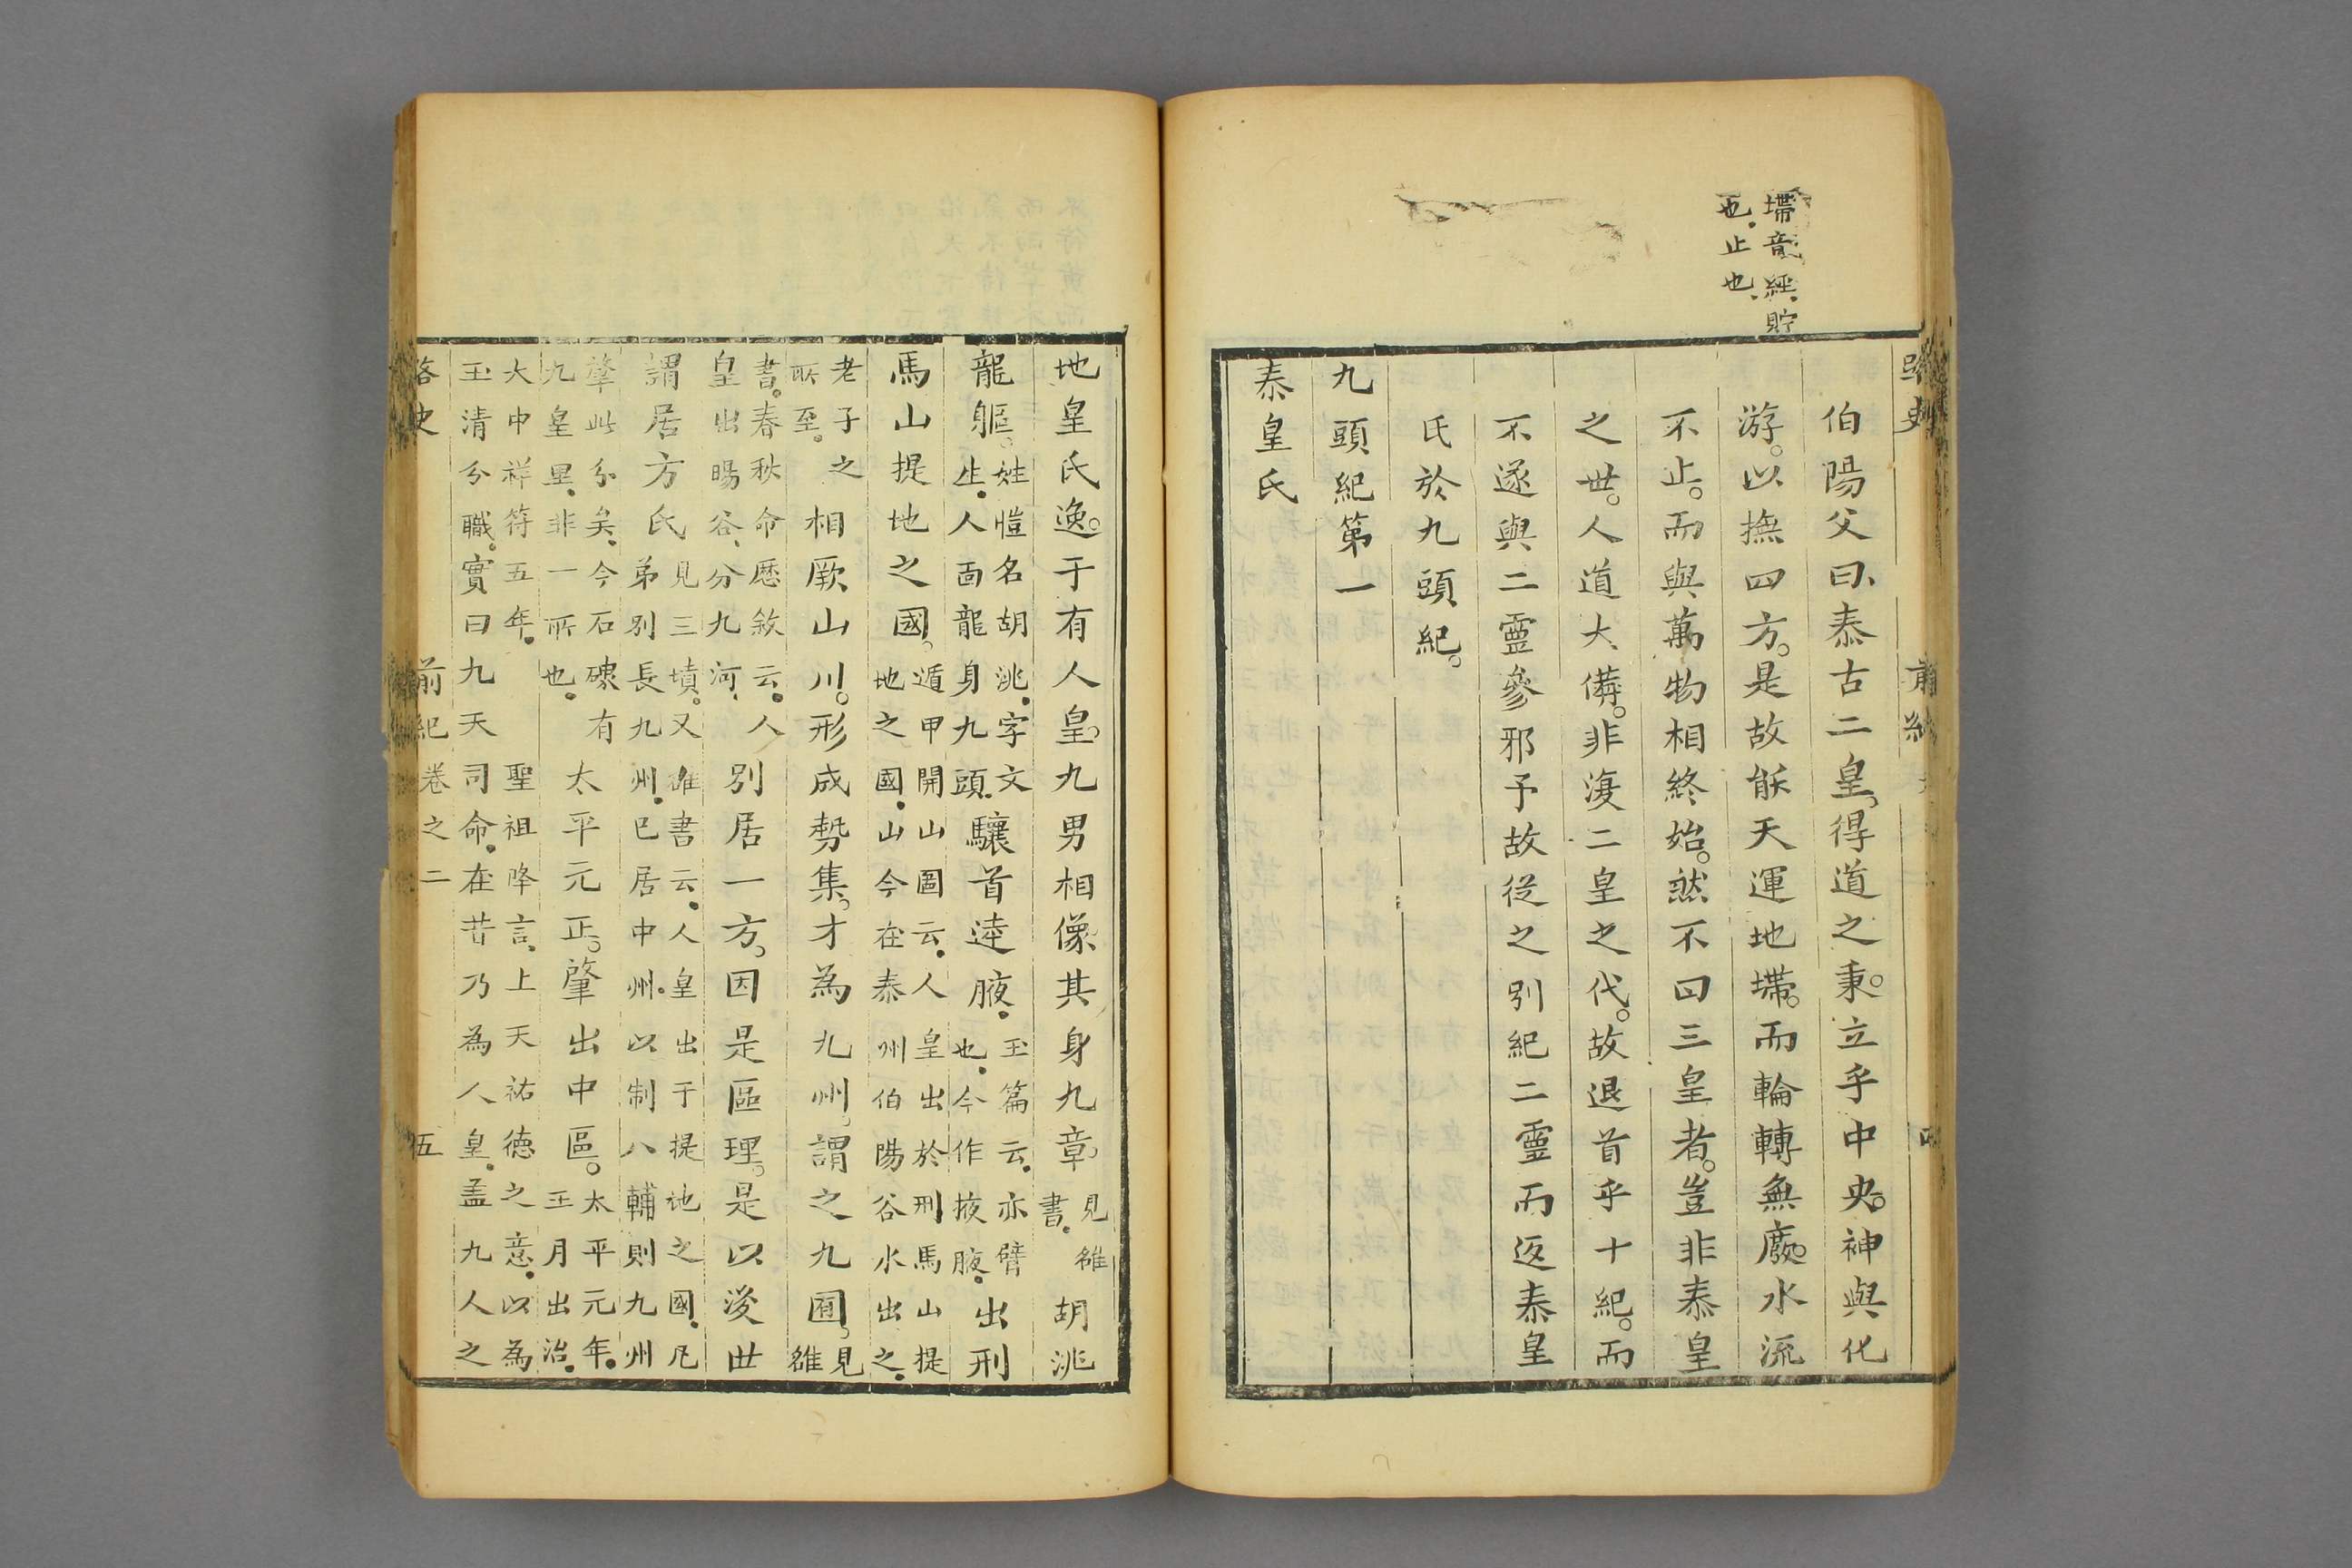 墆音經、貯
也、止也、
路史 前紀 四
伯陽父曰、泰古二皇、得道之秉。立乎中央。神與化
游。以撫四方。是故能天運地墆。而輪轉無廢。水流
不止。而與萬物相終始。然不曰三皇者。豈非泰皇
之世。人道大備。非復二皇之代。故退首乎十紀。而
不遂與二靈參邪予故從之別紀二靈而返泰皇
氏於九頭紀。
九頭紀第一
泰皇氏
地皇氏逸。于有人皇。九男相像其身九章。見雒書、胡洮
龍軀。姓愷名胡洮、字文生、人面龍身九頭、驤首逵腋、玉篇云、亦臂也、今作掖腋、出刑
馬山提地之國。遁甲開山圖云、人皇出於刑馬山提地之國、山今在泰州伯陽谷水出之、
老子之所至。相厥山川。形成勢集。才為九州。謂之九囿。見雒
書。春秋命歷敘云、人皇出暘谷、分九河、別居一方。因是區理。是以後世
謂居方氏見三墳。又雒書云、人皇出于提地之國、凡弟別長九州、己居中州、以制八輔則九州
肇此分矣、今石磲有九皇里、非一所也、太平元正。肇出中區。太平元年、正月出治、
大中祥符五年、聖祖降言、上天祐德之意、以為
玉清分職、實曰九天司命、在昔乃為人皇、盖九人之
路史 前紀卷之二 五